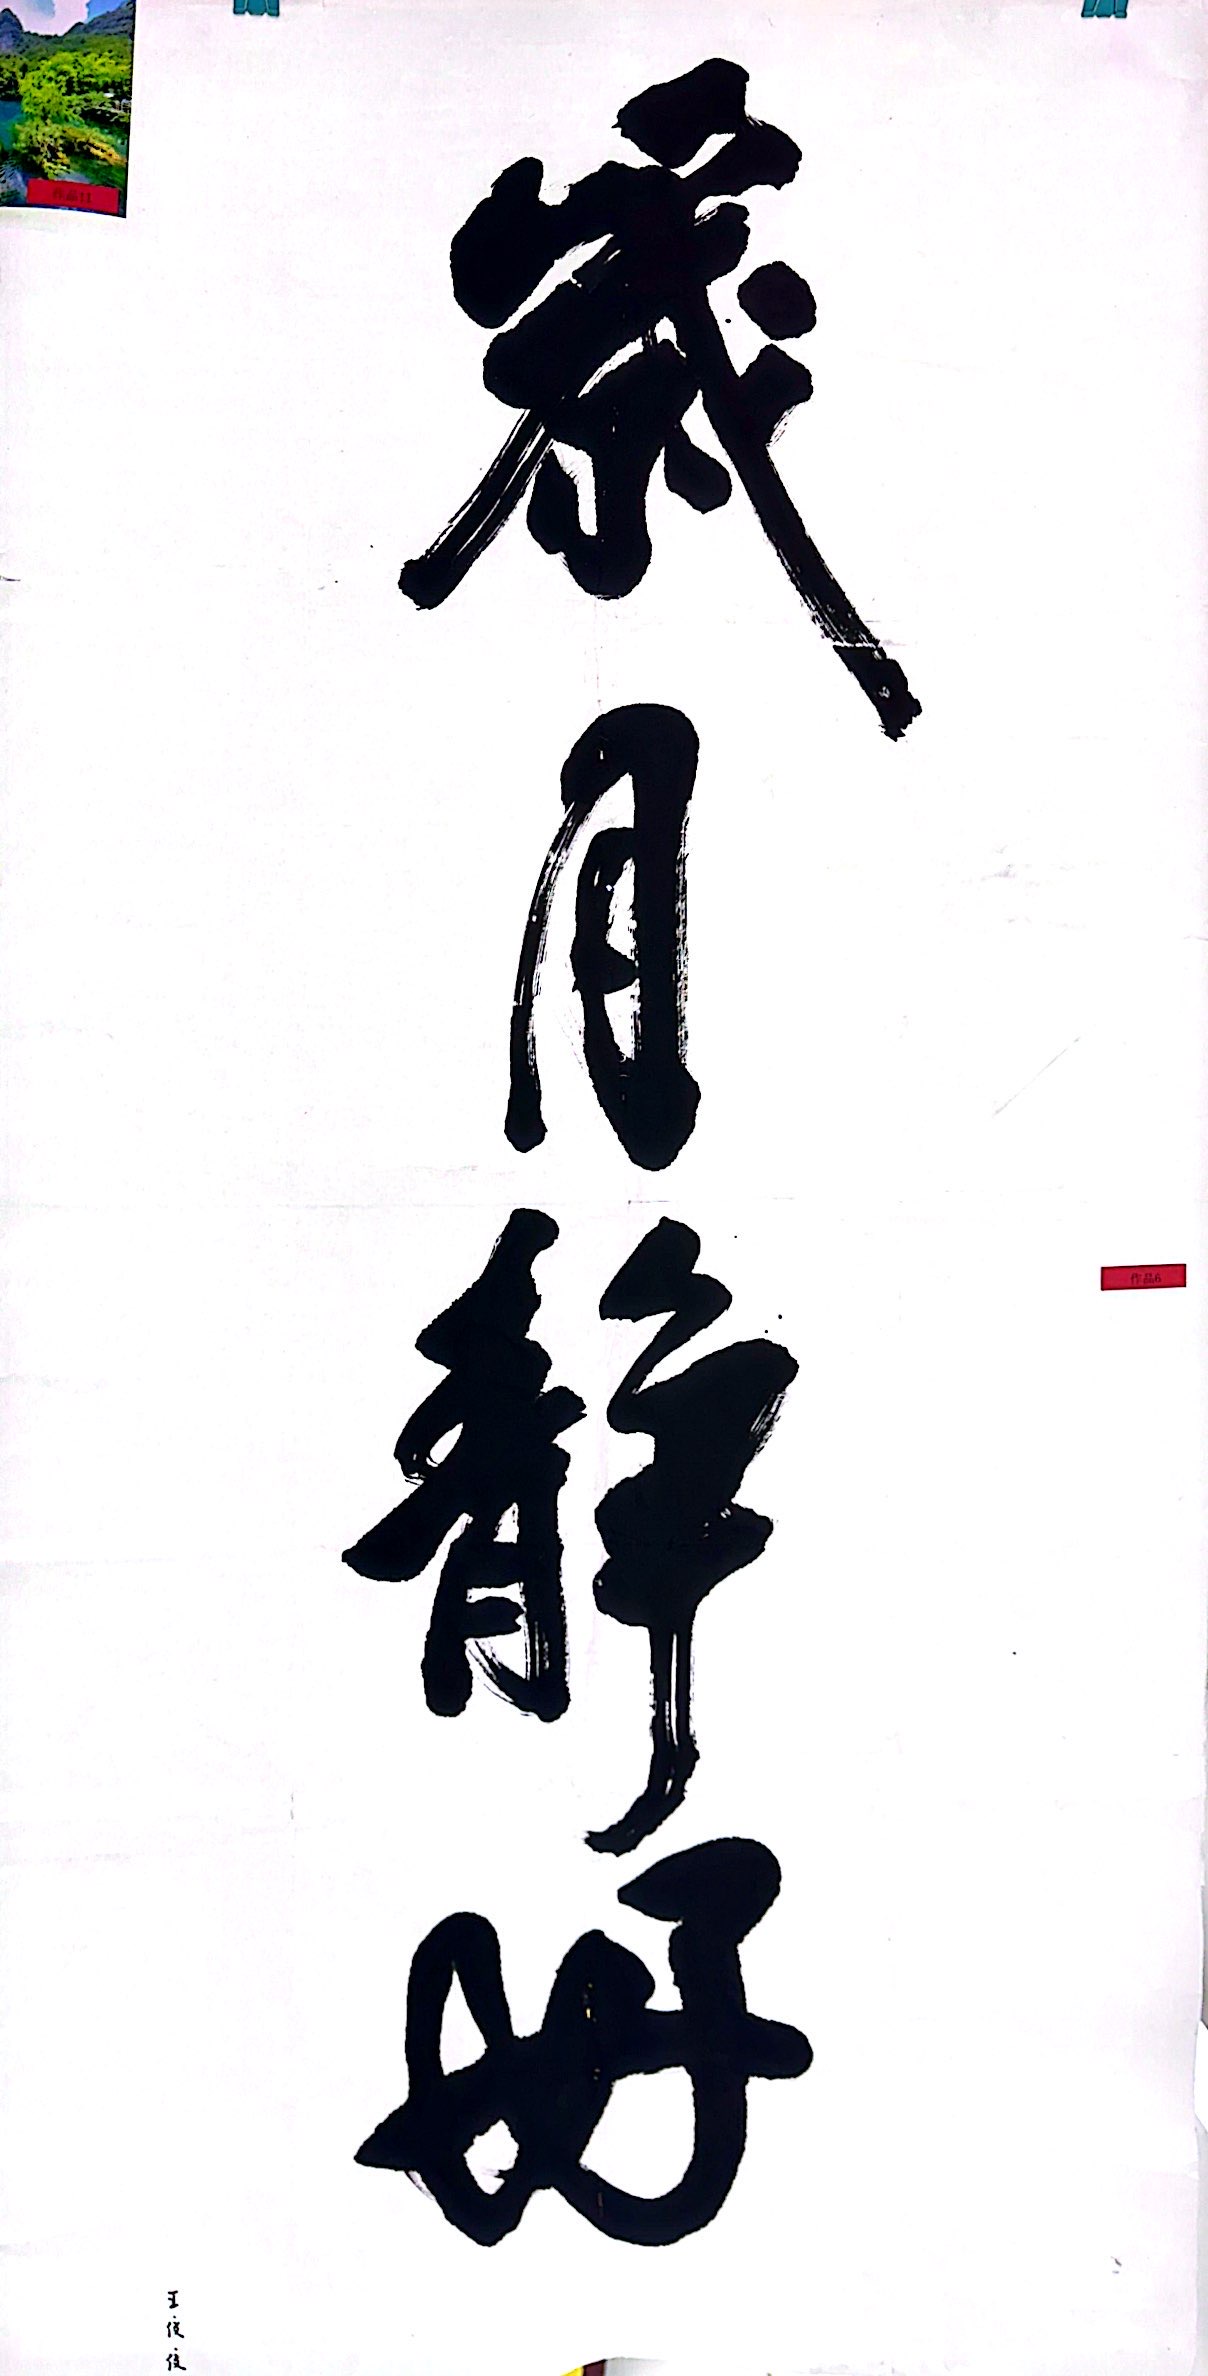 歲月靜好
作品6
作品11
王俊俊